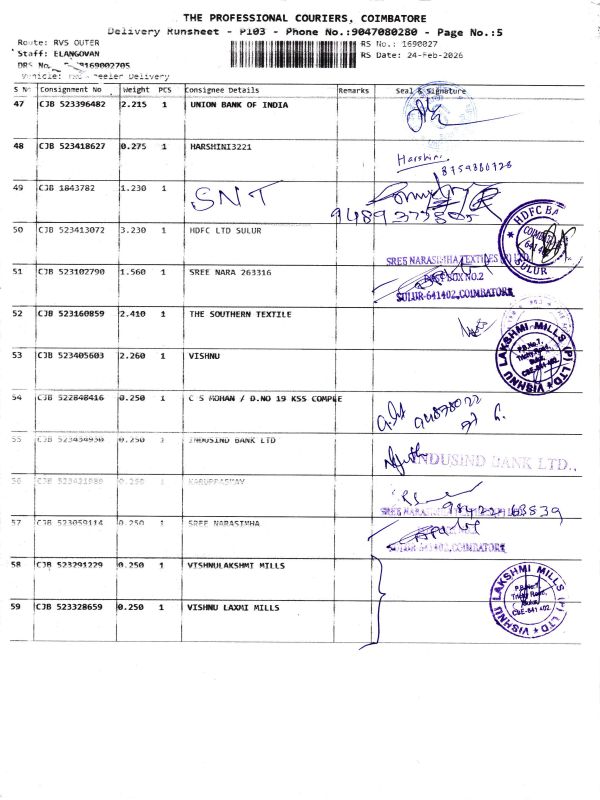 THE PROFESSIONAL COURIERS, COIMBATORE
Delivery Runsheet - P103 - Phone No.:9047080280 - Page No.:5
Route: RVS OUTER
RS No.: 1690827
Staff: ELANGOVAN
RS Date: 24-Feb-2026
DRS No. 169002705
Vehicle: Two Wheeler Delivery
S No Consignment No Weight PCS Consignee Details Remarks Seal & Signature
47 CJB 523396482 2.215 1 UNION BANK OF INDIA
48 CJB 523418627 0.275 1 HARSHINI3221
Harshini
8754880728
49 CJB 1843782 1.230 1 SNT
50 CJB 523413072 3.230 1 HDFC LTD SULUR
HDFC BA
COIMBAT
641 402
SULUR
51 CJB 523102790 1.560 1 SREE NARA 263316
SREE NARASIMHA TEXTILES (P) LTD
POST BOX NO.2
SULUR-641402,COIMBATORE
52 CJB 523160859 2.410 1 THE SOUTHERN TEXTILE
53 CJB 523405603 2.260 1 VISHNU
VISHNU LAKSHMI MILLS (P) LTD
P.B.No.7,
Trichy Road,
Sulur,
CBE-641 402
54 CJB 522848416 0.250 1 C S MOHAN / D.NO 19 KSS COMPLE
55 CJB 523434930 0.250 1 INDUSIND BANK LTD
INDUSIND BANK LTD.,
56 CJB 523421980 0.250 1 KARUPPASMAY
57 CJB 523059114 0.250 1 SREE NARASIMHA
SREE NARASIMHA
SULUR-641402,COIMBATORE
58 CJB 523291229 0.250 1 VISHNULAKSHMI MILLS
59 CJB 523328659 0.250 1 VISHNU LAXMI MILLS
VISHNU LAKSHMI MILLS (P) LTD
P.B.No.7,
Trichy Road,
Sulur,
CBE-641 402